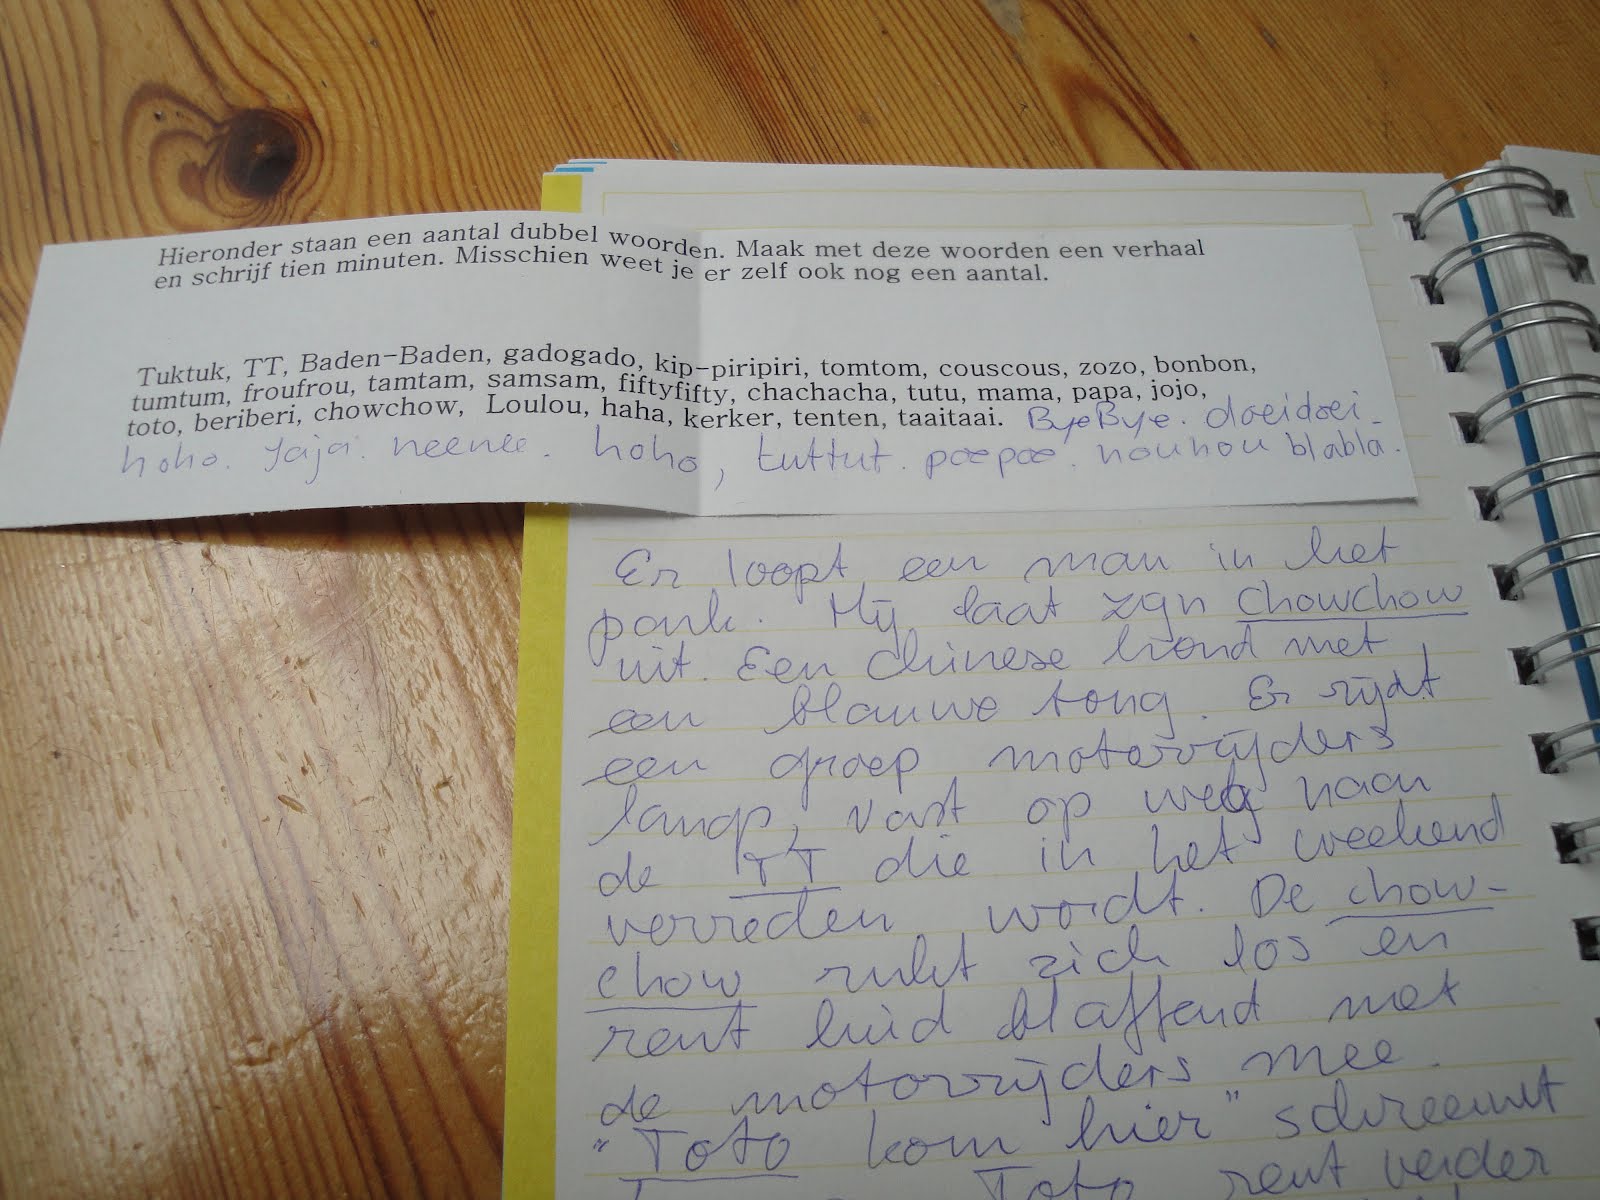 Hieronder staan een aantal dubbel woorden. Maak met deze woorden een verhaal
en schrijf tien minuten. Misschien weet je er zelf ook nog een aantal.
Tuktuk, TT, Baden-Baden, gadogado, kip-piripiri, tomtom, couscous, zozo, bonbon,
tumtum, froufrou, tamtam, samsam, fiftyfifty, chachacha, tutu, mama, papa, jojo,
toto, beriberi, chowchow, Loulou, haha, kerker, tenten, taaitaai. ByeBye. doeidoei.
hoho. jaja. neenee. hoho, tuttut. poepoe. nounou blabla.
Er loopt een man in het
park. Hij laat zijn chowchow
uit. Een chinese hond met
een blauwe tong. Er rijdt
een groep motorrijders
langs, vast op weg naar
de TT die in het weekend
verreden wordt. De chow-
chow rukt zich los en
rent luid blaffend met
de motorrijders mee.
"Toto kom hier" schreeuwt
Toto rent verder